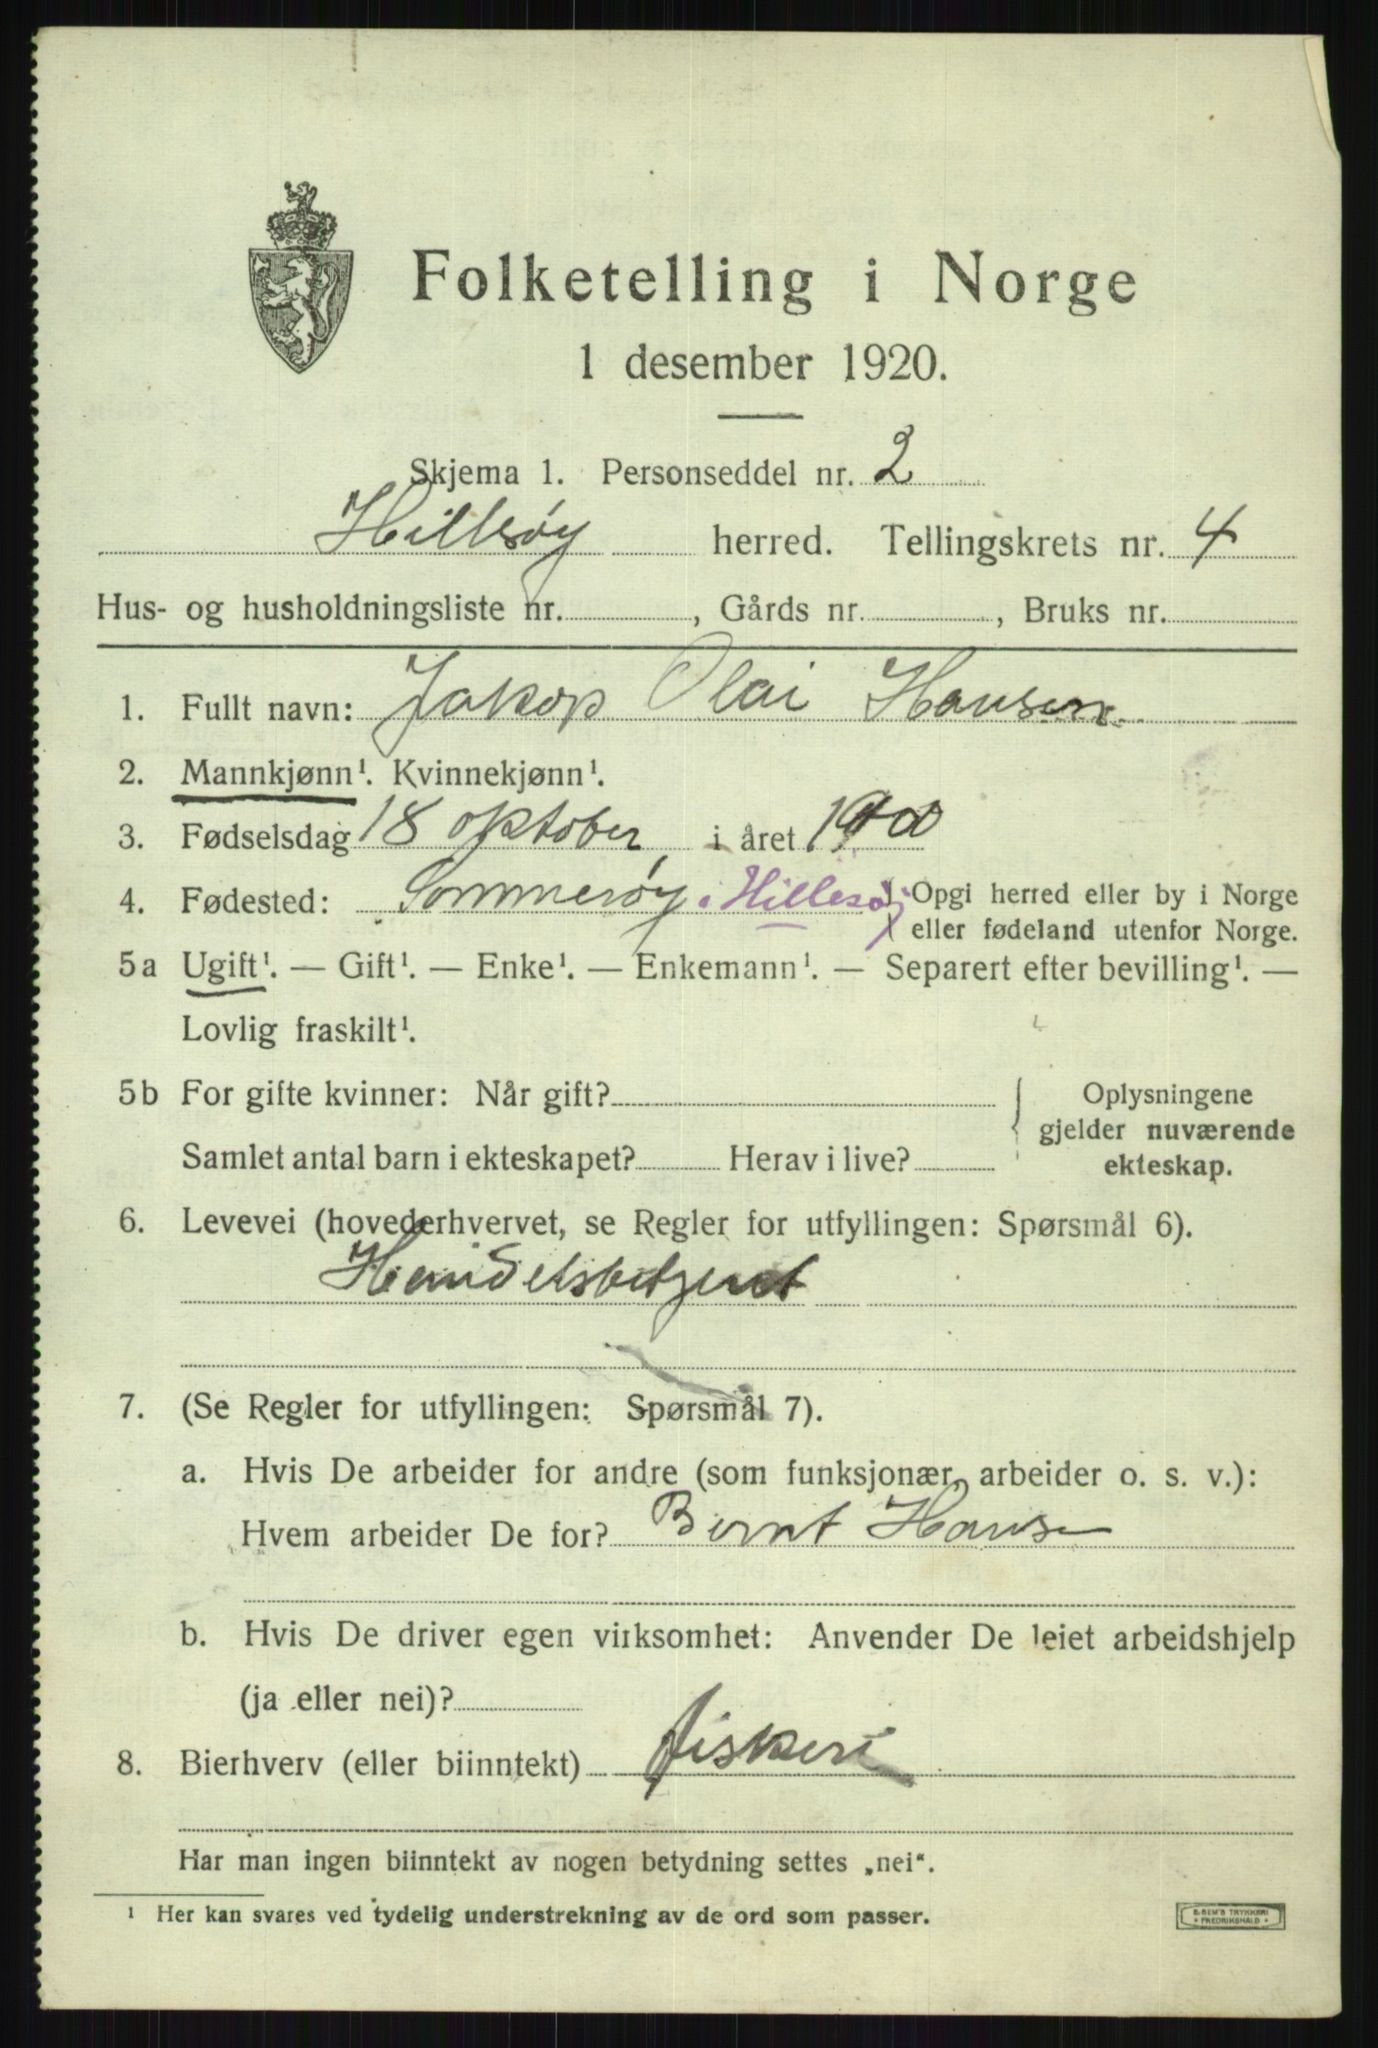 Folketelling i Norge
1 desember 1920.
Skjema 1. Personseddel nr. 2
Hillesøy herred. Tellingskrets nr. 4
Hus- og husholdningsliste nr. , Gårds nr. , Bruks nr.
1. Fullt navn: Jakop Olai Hansen
2. Mannkjønn¹. Kvinnekjønn¹.
3. Fødselsdag 18 oktober i året
4. Fødested: Sommerøy i Hillesøy Opgi herred eller by i Norge
eller fødeland utenfor Norge.
5a Ugift¹. — Gift¹. — Enke¹. — Enkemann¹. — Separert efter bevilling¹. —
Lovlig fraskilt¹.
5b For gifte kvinner: Når gift? Oplysningene
gjelder nuværende
Samlet antal barn i ekteskapet? Herav i live? ekteskap.
6. Levevei (hovederhvervet, se Regler for utfyllingen: Spørsmål 6).
Handelsbetjent
7. (Se Regler for utfyllingen: Spørsmål 7).
a. Hvis De arbeider for andre (som funksjonær, arbeider o. s. v.):
Hvem arbeider De for? Bernt Hansen
b. Hvis De driver egen virksomhet: Anvender De leiet arbeidshjelp
(ja eller nei)?
8. Bierhverv (eller biinntekt) fiskeri
Har man ingen biinntekt av nogen betydning settes „nei“.
¹ Her kan svares ved tydelig understrekning av de ord som passer.
TRYKKERI
FREDRIKSHALD